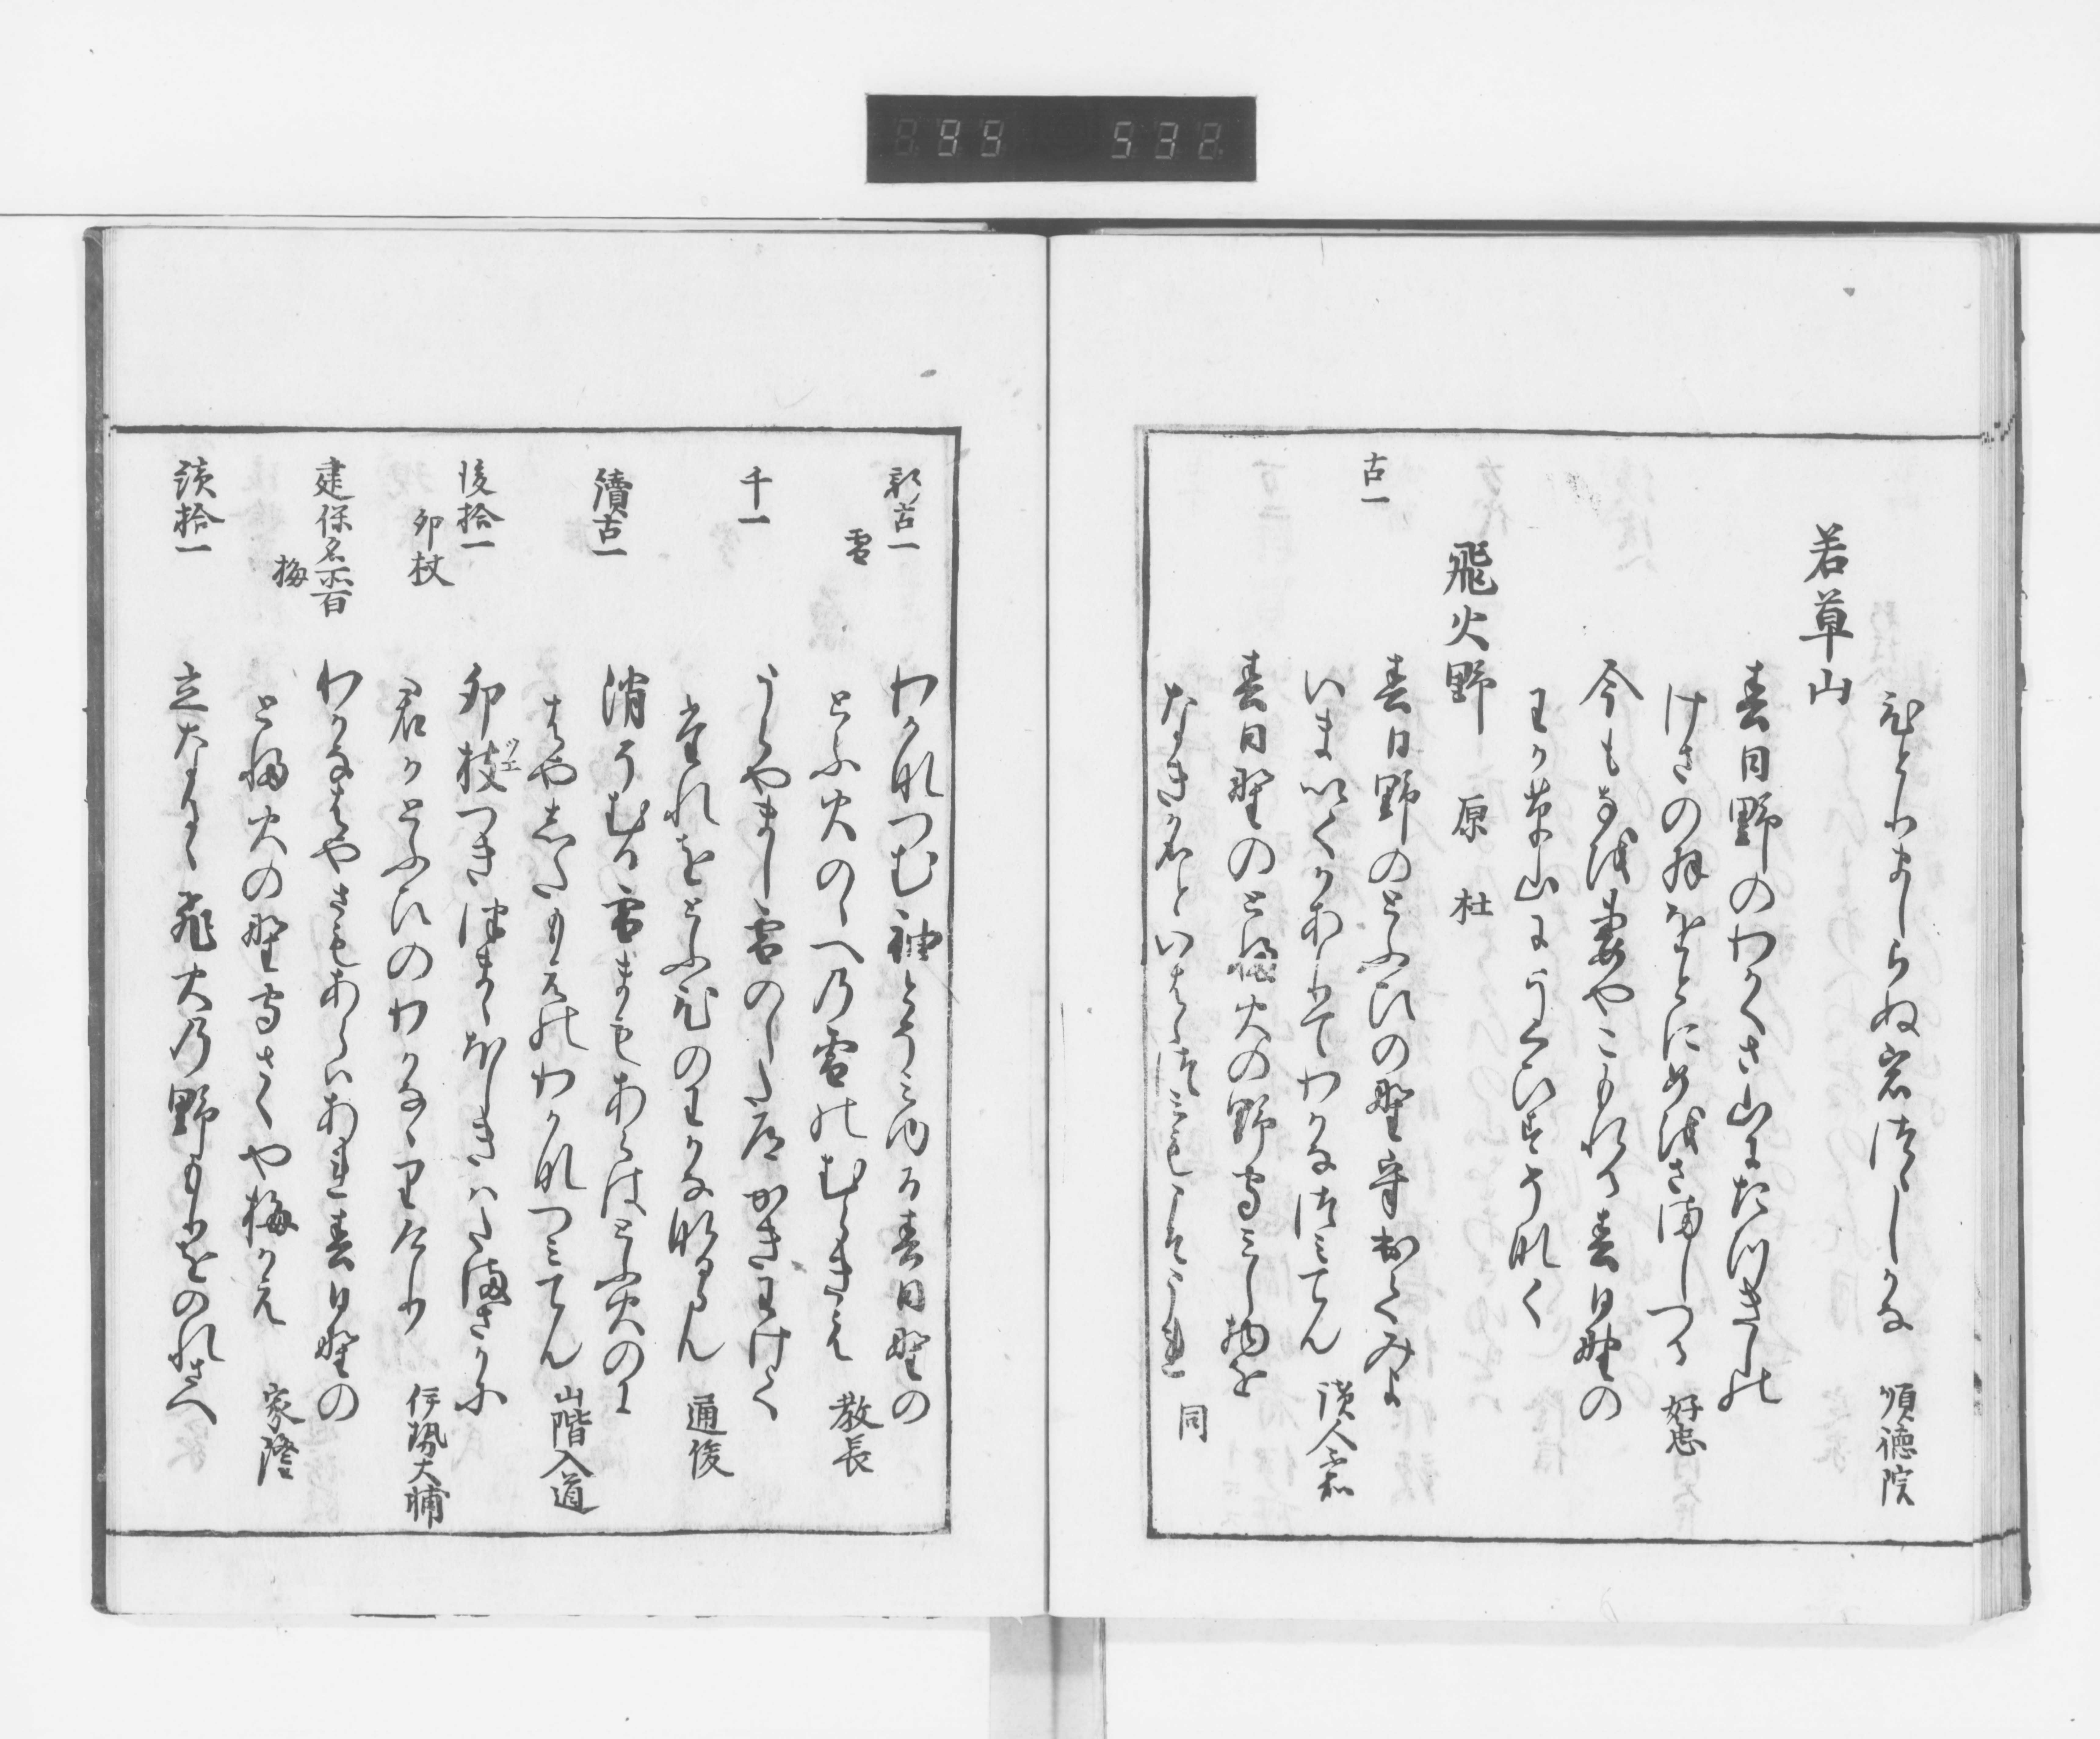 99 532
ひとりましらぬ岩つゝしかな 順徳院
若草山
春日野のわかくさ山にたつきしの
けさの羽をとにめをさましつる 好忠
今もなを妻やこもれる春日野の
わか草山にうくひすそ啼く
飛火野 原 杜
古一
春日野のとふひの野守出てみよ
いまいくかありてわかなつみてん 読人不知
春日野のと婦火の野守みし物を
なき名といはゝつみもこそうれ 同
新古一
雪
わかなつむ袖とそみゆる春日野の
とふ火のゝへの雪のむらきえ 教長
千一
うらやまし雪のした草かきわけて
たれをとふひのわかななるらん 通俊
續古一
消そむる雪まもあらはとふ火のに
はやしたもえのわかなつみてん 山階入道
後拾一
卯杖
卯杖つえつきつまゝほしきはたまさかに
君かとふひのわかな里けり 伊勢大輔
建保名所百
梅
わかなはやさもあらはあれ春日野の
と婦火の野守さくや梅かえ 家隆
続拾一
立なるゝ飛火乃野もりをのれさへ